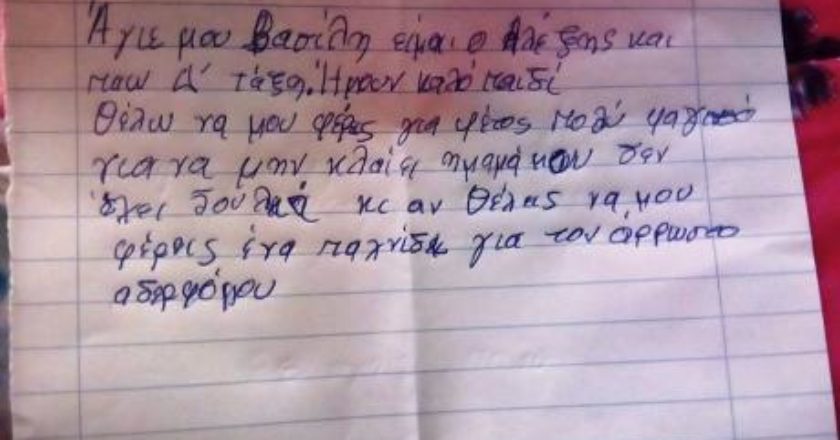 Άγιε μου Βασίλη είμαι ο Αλέξης και
παω Α' τάξη. Ήμουν καλό παιδί
Θέλω να μου φέρεις για φέτος πολύ φαγητό
για να μην κλαίει η μαμά μου δεν
έχει δουλειά κε αν θέλεις να μου
φέρεις ένα παχνίδι για τον άρρωστο
αδερφόμου